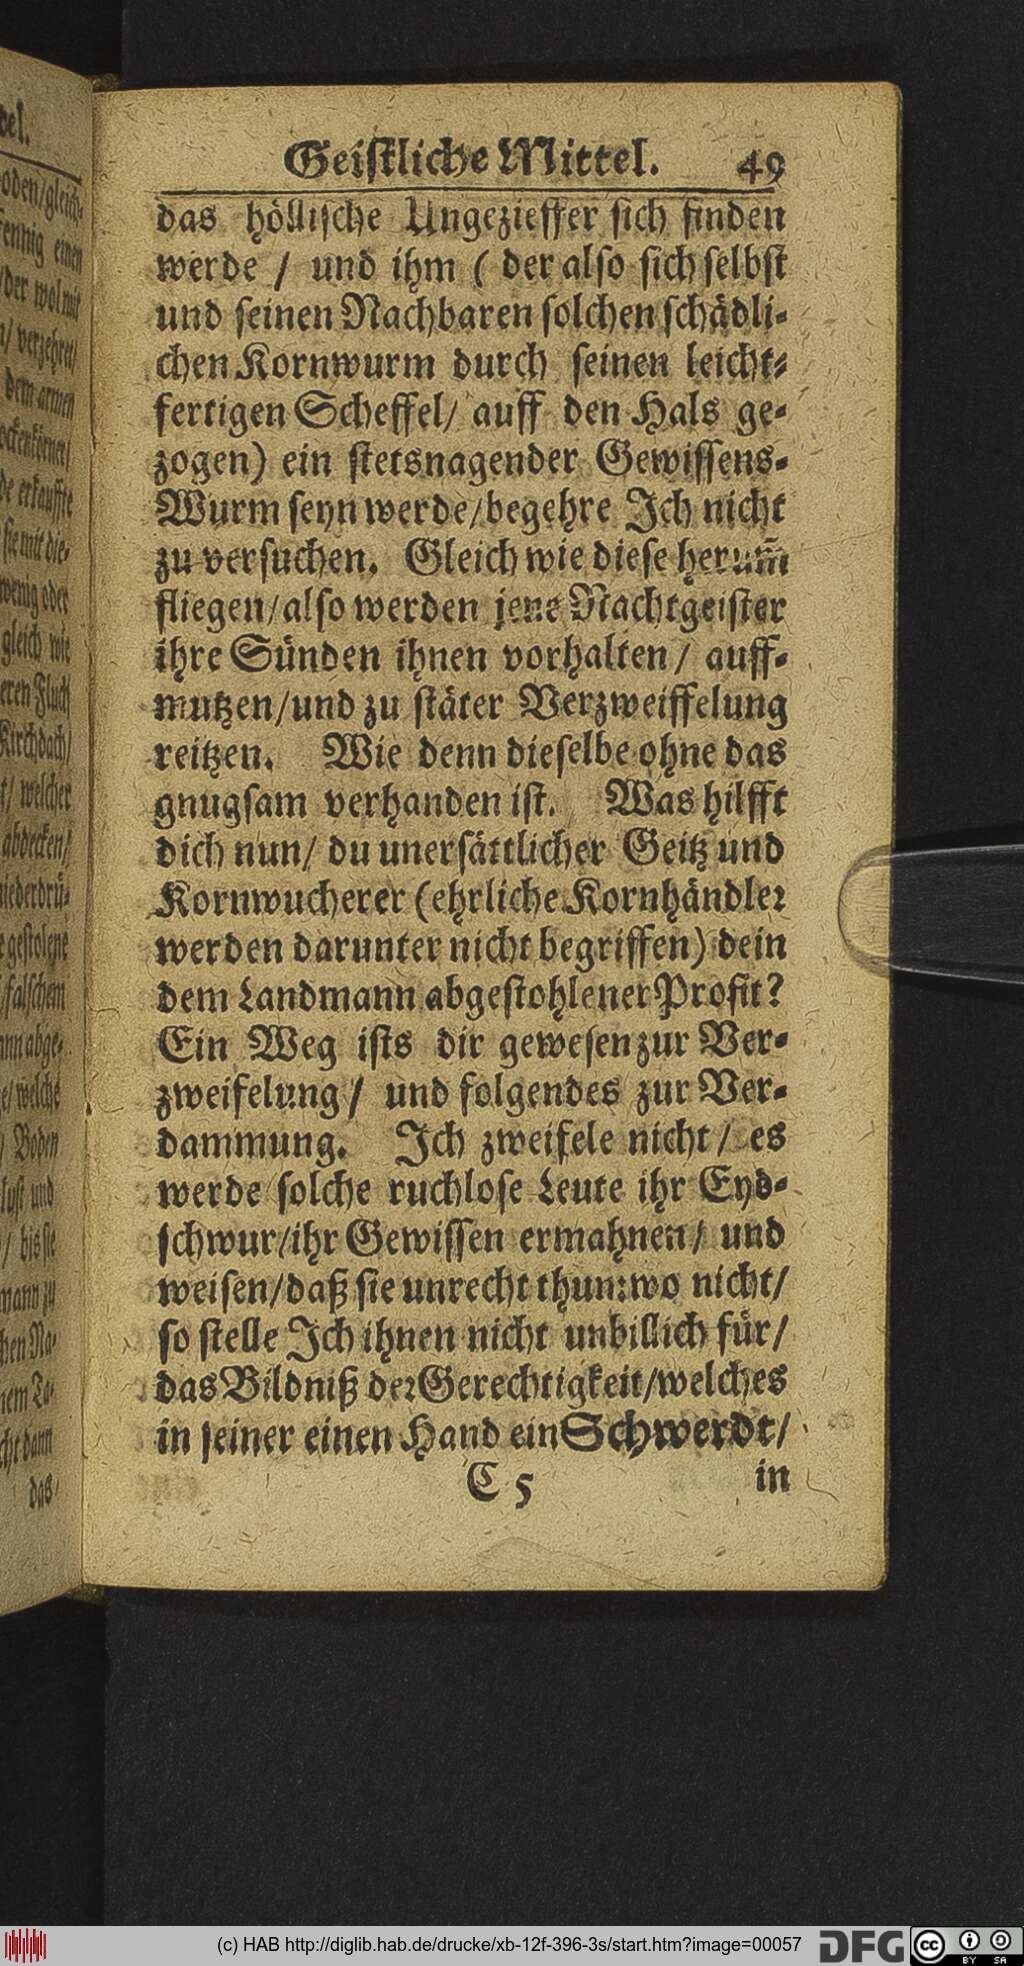 Geistliche Mittel. 49
das höllische Ungezieffer sich finden
werde / und ihm ( der also sich selbst
und seinen Nachbaren solchen schädli-
chen Kornwurm durch seinen leicht-
fertigen Scheffel / auff den Hals ge-
zogen) ein stetsnagender Gewissens-
Wurm seyn werde / begehre Ich nicht
zu versuchen. Gleich wie diese herum̃
fliegen / also werden jene Nachtgeister
ihre Sünden ihnen vorhalten / auff-
mutzen / und zu stäter Verzweiffelung
reitzen. Wie denn dieselbe ohne das
gnugsam verhanden ist. Was hilfft
dich nun / du unersättlicher Geitz und
Kornwucherer (ehrliche Kornhändler
werden darunter nicht begriffen) dein
dem Landmann abgestohlener Profit?
Ein Weg ists dir gewesen zur Ver-
zweifelung / und folgendes zur Ver-
dammung. Ich zweifele nicht / es
werde solche ruchlose Leute ihr Eyd-
schwur / ihr Gewissen ermahnen / und
weisen / daß sie unrecht thun: wo nicht /
so stelle Ich ihnen nicht unbillich für /
das Bildniß der Gerechtigkeit / welches
in seiner einen Hand ein Schwerdt /
C 5 in
(c) HAB http://diglib.hab.de/drucke/xb-12f-396-3s/start.htm?image=00057
DFG
cc BY SA